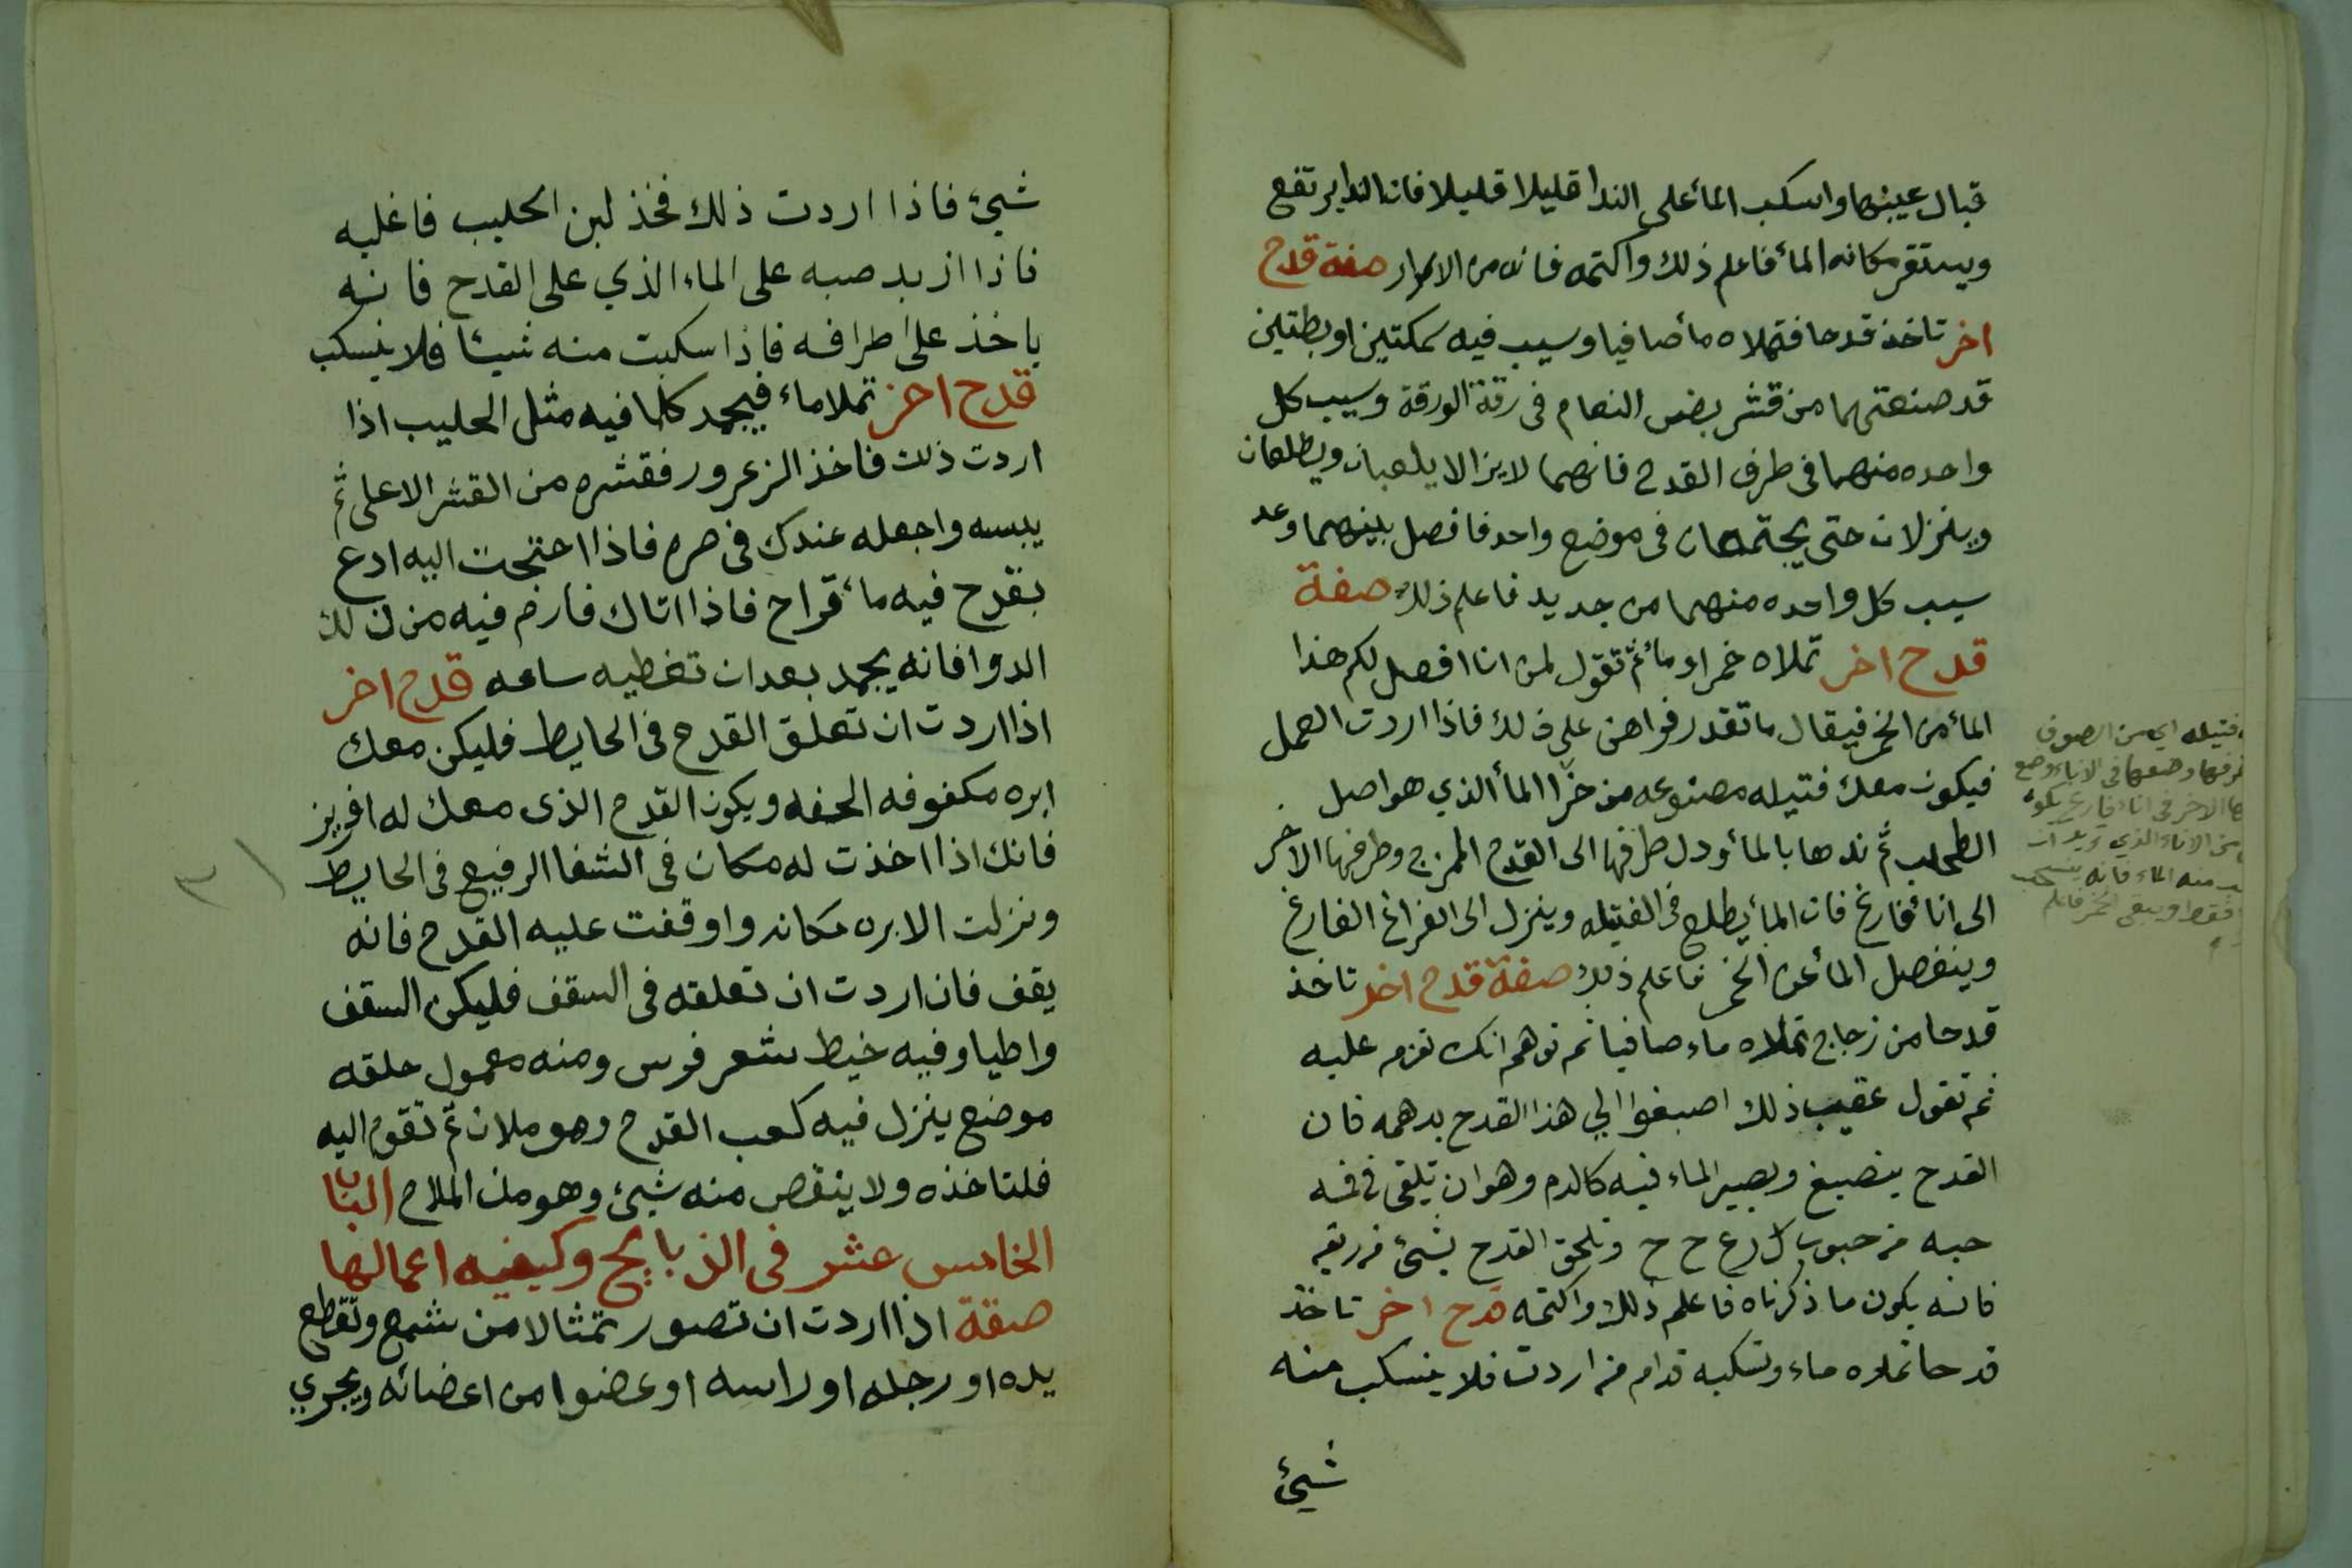 قبال عينها واسكب المأ على الندا قليلا قليلا فان الندا يرتفع
ويستقر مكانه المأ فاعلم ذلك واكتمه فانه من الاسرار صفة قدح
اخر تاخذ قدحا فتملاه مأ صافيا وسيب فيه سمكتين او بطتين
قد صنعتهما من قشر بيض النعام فى رقة الورقة وسيب كل
واحده منهما فى طرف القدح فانهما لا يزالا يلعبان ويطلعان
وينزلان حتى يجتمعان فى موضع واحد فافصل بينهما وعد
سيب كل واحده منهما من جديد فاعلم ذلك صفة
قدح اخر تملاه خمرا ومأ ثم تقول لمن انا افصل لكم هذا
المأ من الخمر فيقال ما تقدر فواهن على ذلك فاذا اردت العمل
فيكون معك فتيله مصنوعه من خرا المأ الذي هو اصل
الطحلب ثم ندها بالمأ ودل طرفها الى القدح الممزج وطرفها الاخر
الى انا فارغ فان المأ يطلع فى الفتيله وينزل الى الفراغ الفارغ
وينفصل المأ عن الخمر فاعلم ذلك صفة قدح اخر تاخذ
قدحا من زجاج تملاه ماء صافيا ثم توهم انك تعزم عليه
ثم تقول عقيب ذلك اصبغوا لي هذا القدح بدهمه فان
القدح ينصبغ ويصير الماء فيه كالدم وهو ان تلقى فى فمه
حبه من حبوب ال رع ح ح وتلحق القدح بشئ من ريقه
فانه يكون ما ذكرناه فاعلم ذلك واكتمه قدح اخر تاخذ
قدحا تملاه ماء وتسكبه قدام من اردت فلا ينسكب منه
شيئ
فتيله اي من الصوف
طرفها وضعها فى الاناء وضع
الاخر فى اناء فارغ يكون
من الاناء الذي تريد ان
منه الماء فانه ينسحب
فقط ويبقى الخمر فاعلم
شيئ فاذا اردت ذلك فخذ لبن الحليب فاغليه
فاذا ازبد صبه على الماء الذي على القدح فانه
ياخذ على اطرافه فاذا سكبت منه شيئا فلا ينسكب
قدح اخر تملا ماء فيجمد كلما فيه مثل الحليب اذا
اردت ذلك فاخذ الزعرور فقشره من القشر الاعلى ثم
يبسه واجعله عندك فى صره فاذا احتجت اليه ادع
بقدح فيه مأ قراح فاذا اتاك فارم فيه من ذلك
الدوا فانه يجمد بعد ان تغطيه ساعه قدح اخر
اذا اردت ان تعلق القدح فى الحايط فليكن معك
ابره مكفوفه الحفه ويكون القدح الذى معك له افريز
فانك اذا اخذت له مكان فى الشفا الرفيع فى الحايط
ونزلت الابره مكانه واوقفت عليه القدح فانه
يقف فان اردت ان تعلقه فى السقف فليكن السقف
واطيا وفيه خيط شعر فرس ومنه معمول حلقه
موضع ينزل فيه كعب القدح وهو ملان ثم تقوم اليه
فلتاخذه ولا ينقص منه شيئ وهو من الملاح الباب
الخامس عشر فى الذبايح وكيفيه اعمالها
صفة اذا اردت ان تصور تمثالا من شمع وتقطع
يده او رجله او راسه او عضوا من اعضائه ويجري